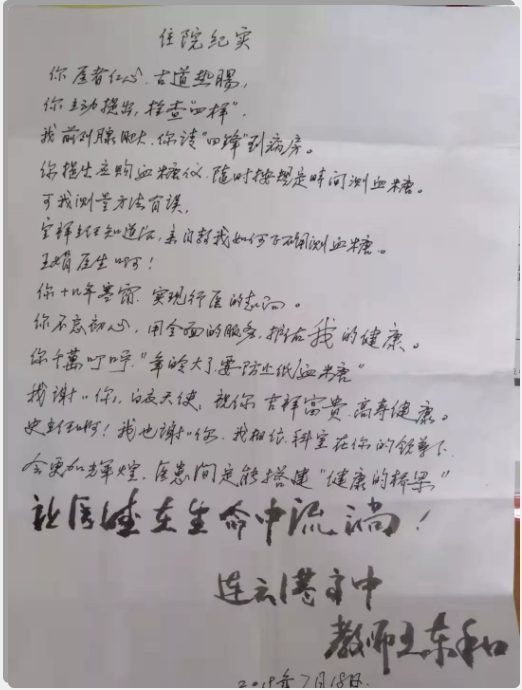 住院纪实
你医者仁心、古道热腸，
你主动提出，检查"四样"，
我前列腺肥大，你请"田锋"到病房。
你提出应购血糖仪，随时按规定时间测血糖。
可我测量方法有误，
主任知道后，亲自教我如何正确测血糖。
王娟医生啊！
你十几年寒窗，实现行医的志向。
你不忘初心，用全面的服务，担保我的健康。
你千萬叮咛，"年龄大了要防止低血糖"
我谢谢你，白衣天使，祝你吉祥富貴，高寿健康。
史主任啊！我也谢谢你，我相信，科室在你的领导下，
会更加辉煌，医患间定能搭建"健康的桥梁"
让医德在生命中流淌！
连云港市中
教师王东和
2019年7月18日.